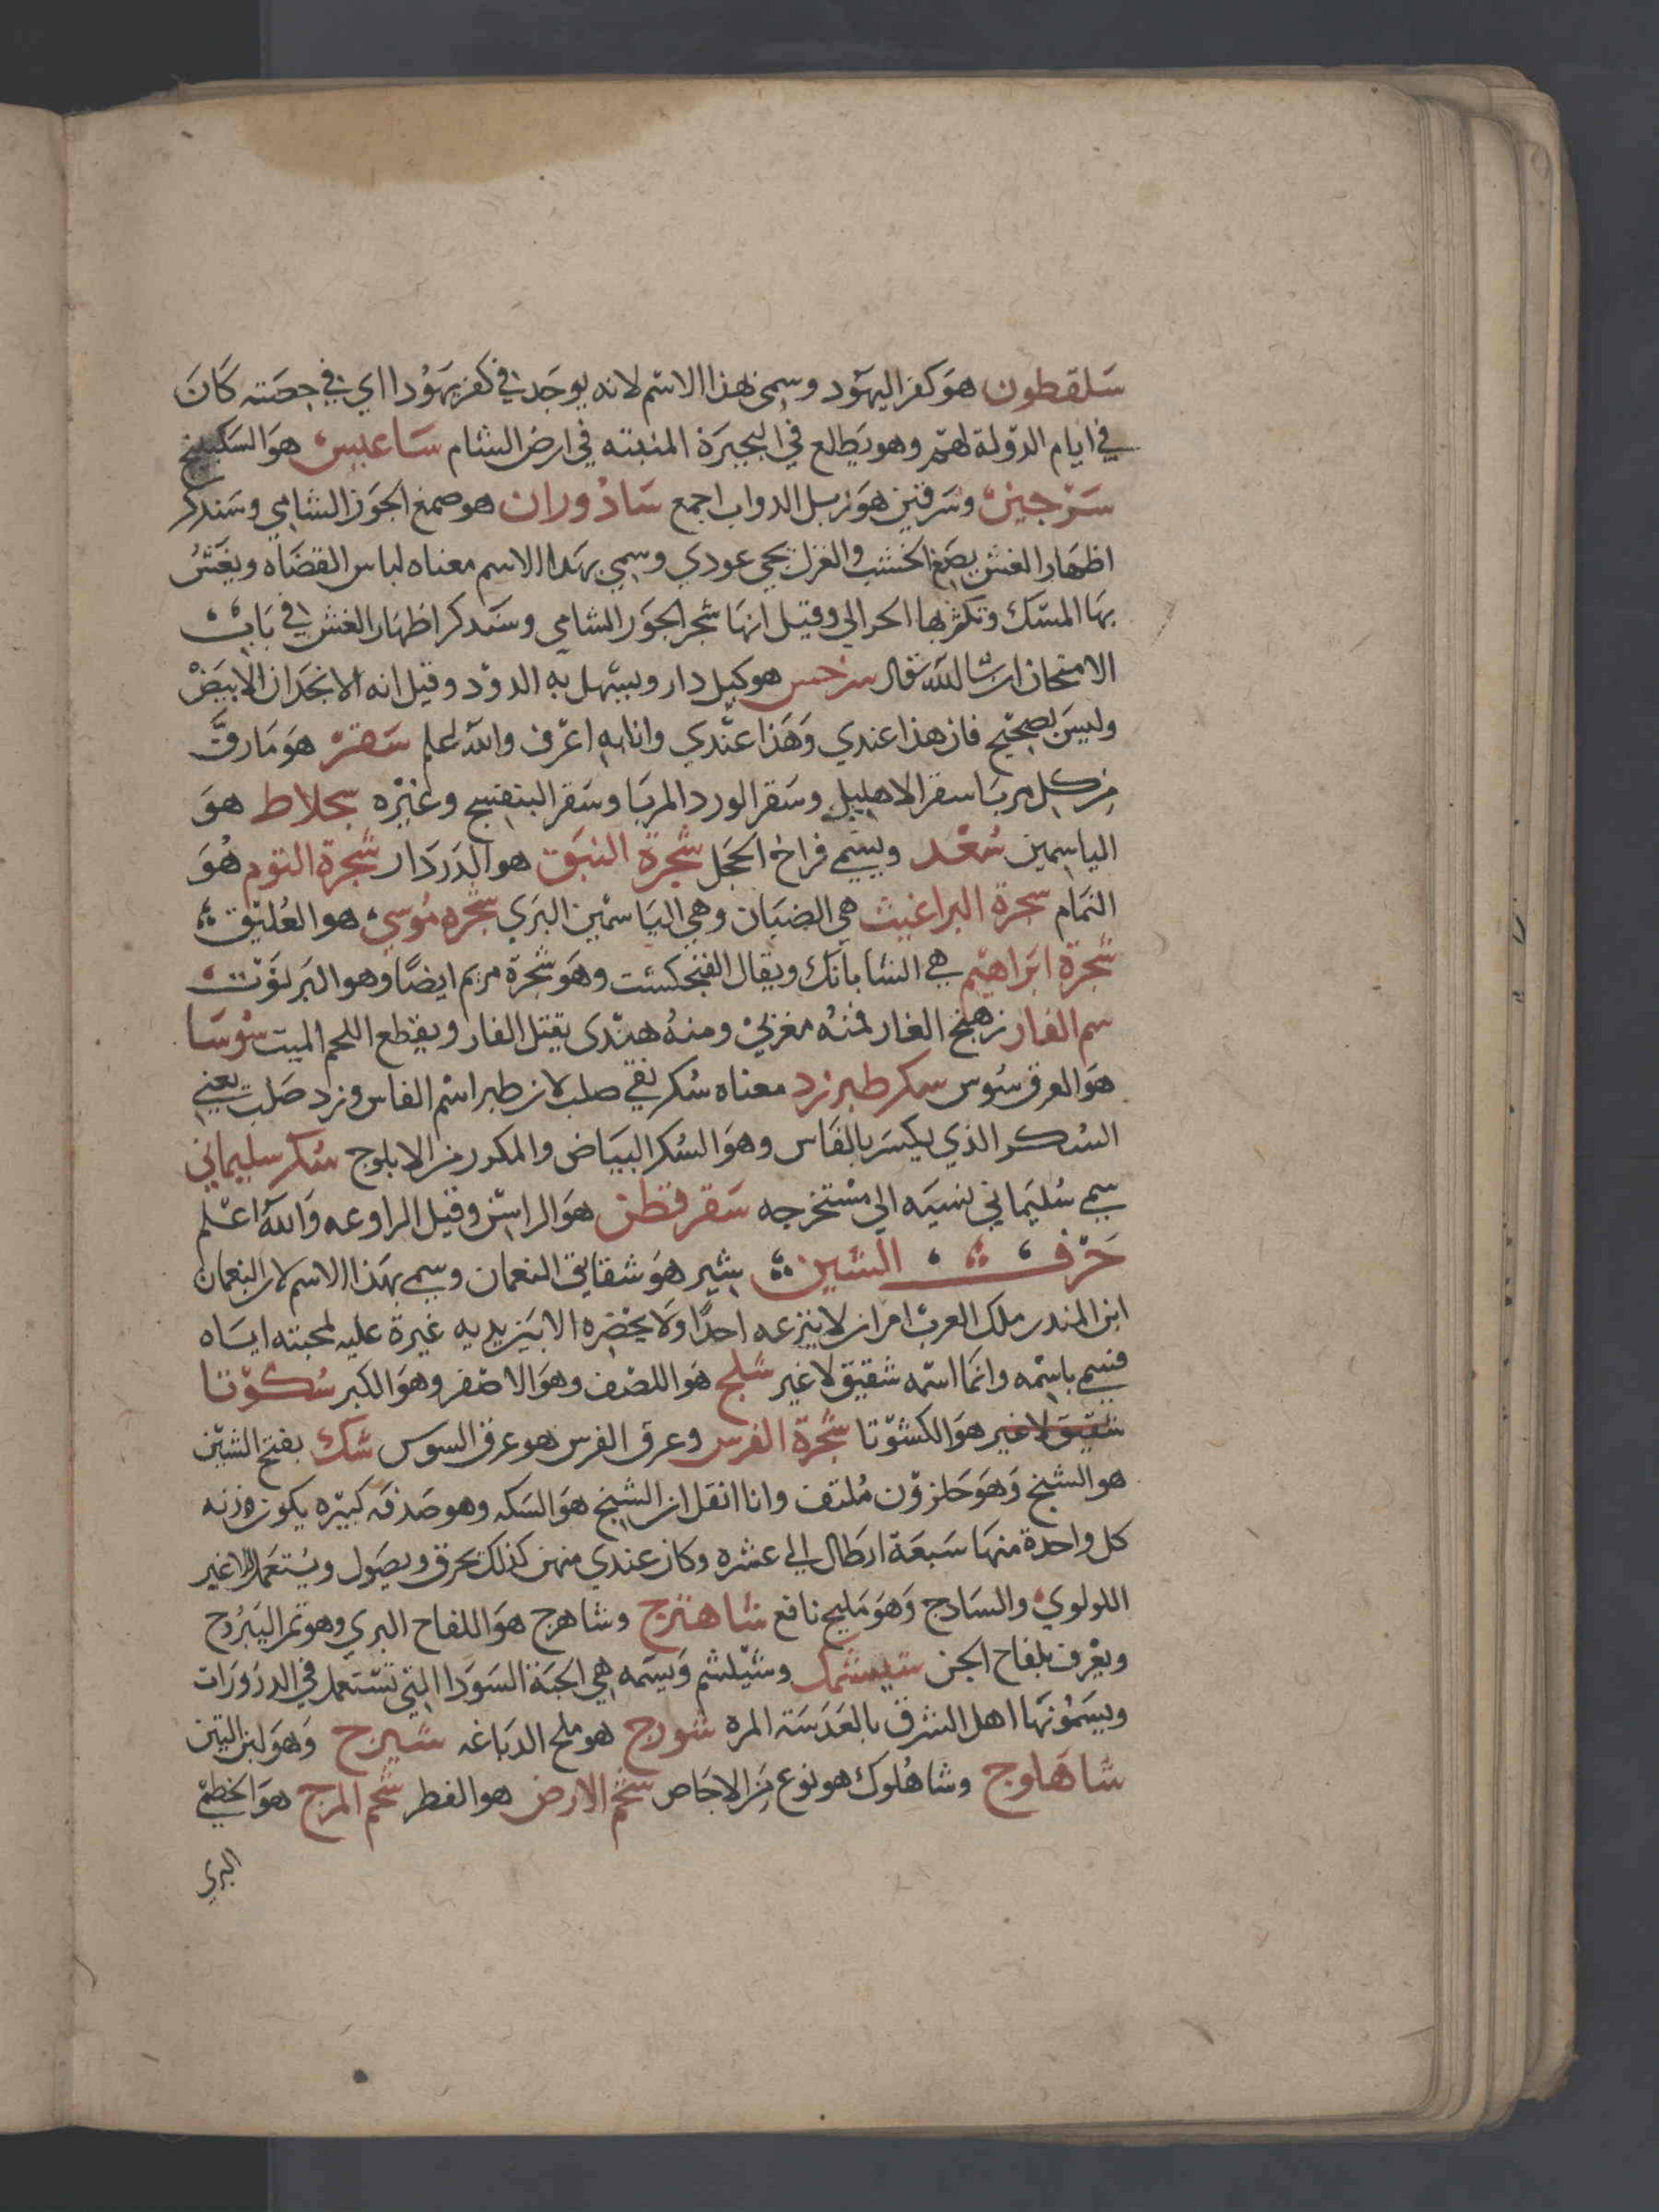 سَلقطون هوَ كفر اليهَود وسمي هذا الاسْم لانه يوجَد في كفر يهَوُدا اي في حصَته كَانَ
في ايام الدّولة لهمْ وهو يَطلع في البحيَرة المنبته في ارض الشام سَاعبيس هوَ السَكبينج
سَرْجين وسَرقين هوَ زبل الدواب اجمع سَادْوران هو صمغ الجَوز الشامي وسَنذكر
اظهَار الغش بصَمغ الخشب والغزل يحي عودي وسمي بهَذا الاسم معناه لباس القضَاه ويغَشُ
بهَا المسْك وتكثر بها الحرالي وقيل انهَا شجر الجوَز الشامي وسَنذكر اظهَار الغش في بَابْ
الامتحان ان شا الله تعالى سرخس هو كيل دار ويسَهل به الدوْد وقيل انه الانجدَان الابيَضْ
وليسَ بصحيْح فان هذا عندي وَهَذا عنْدي وانا به اعْرف والله اعلم سَقرْ هوَ مَا رقَّ
من كل مربَا سقر الاهليلج وسَقر الورد المربَا وسَقر البنفسج وغيْره سجلاط هوَ
الياسمين سُعْد ويسَمي فراخ الحَجل شجَرة النبَق هو الدَردَار شجَرة التوم هُوَ
النمَام سحرة البراغيث هي الضيَان وهي اليَاسمْين البرَي شجَره مُوسي هو العُليْق
شجَرة ابَراهيْم هي الشابَانَك ويقَال الفنجَكست وهوَ شجَرة مريم ايضًا وهو البَرنوْت
سم الفار زهج الغار فمنُه مغربيْ ومنهُ هنْدى يقتل الفار ويقطع اللحم الميت سُوسَا
هوَ العرق سُوس سكر طبرزد معناه سُكر نقي صلب لان طبر اسْم الفاس وزد صَلب يعني
السُكر الذي يكسَر بالفَاس وهوَ السُكر البيَاض والمكرر من الابلوج سُكر سليماني
سمي سُليَماني نسبَه الي مسْتخرجه سَقرقطن هوَ الراسْن وقيل الراوعه وَاللهُ اعْلم
حَرْف الشين بشير هوَ شقايق النعمان وسمي بهَذا الاسم لان النعمان
ابن المنذر ملك العربْ امر ان لا ينزعه احدًا وَلا يحْضره الا بيَن يديه غيرة عليه لمحبته ايَاه
فسمي باسْمه وانمَا اسْمه شقيق لا غير شَلج هوَ اللصْف وهوَ الاصْفر وهوَ الكبر شكوْتا
شقيق لا غير هوَ الكشوْتا شجَرة الفرس وعرق الفرس هو عرق السوس شَك بفتح الشيْن
هو الشنج وَهوَ حَلزوْن مُلتف وانا انقل ان الشنج هوَ السَكه وهو صَدفه كبيْره يكون وزنه
كل واحدة منهَا سَبعَة ارطال الي عشره وكان عندي منهن كذلك يحرق ويصَول ويُستعَمل لا غير
اللولوي والسَادج وَهوَ مَليح نافع شاهترج وشاهرج هوَ اللفاح البري وهو ثمَر اليَبرُوح
ويعْرف بلفاح الجن شيشمَك وشيْلشم وَيسَمه هي الحَبَة السَودا التي تسْتعمل في الدرَورَات
ويسَموُنهَا اهل الشرق بالعَدَسَة المره شورج هو ملح الدبَاغه شَيرج وَهوَ لبن التين
شاهَلوج وشاهُلوك هو نوع مَن الاجَاص شحَم الارض هو الفطر شحَم المرج هوَ الخطميْ
البري